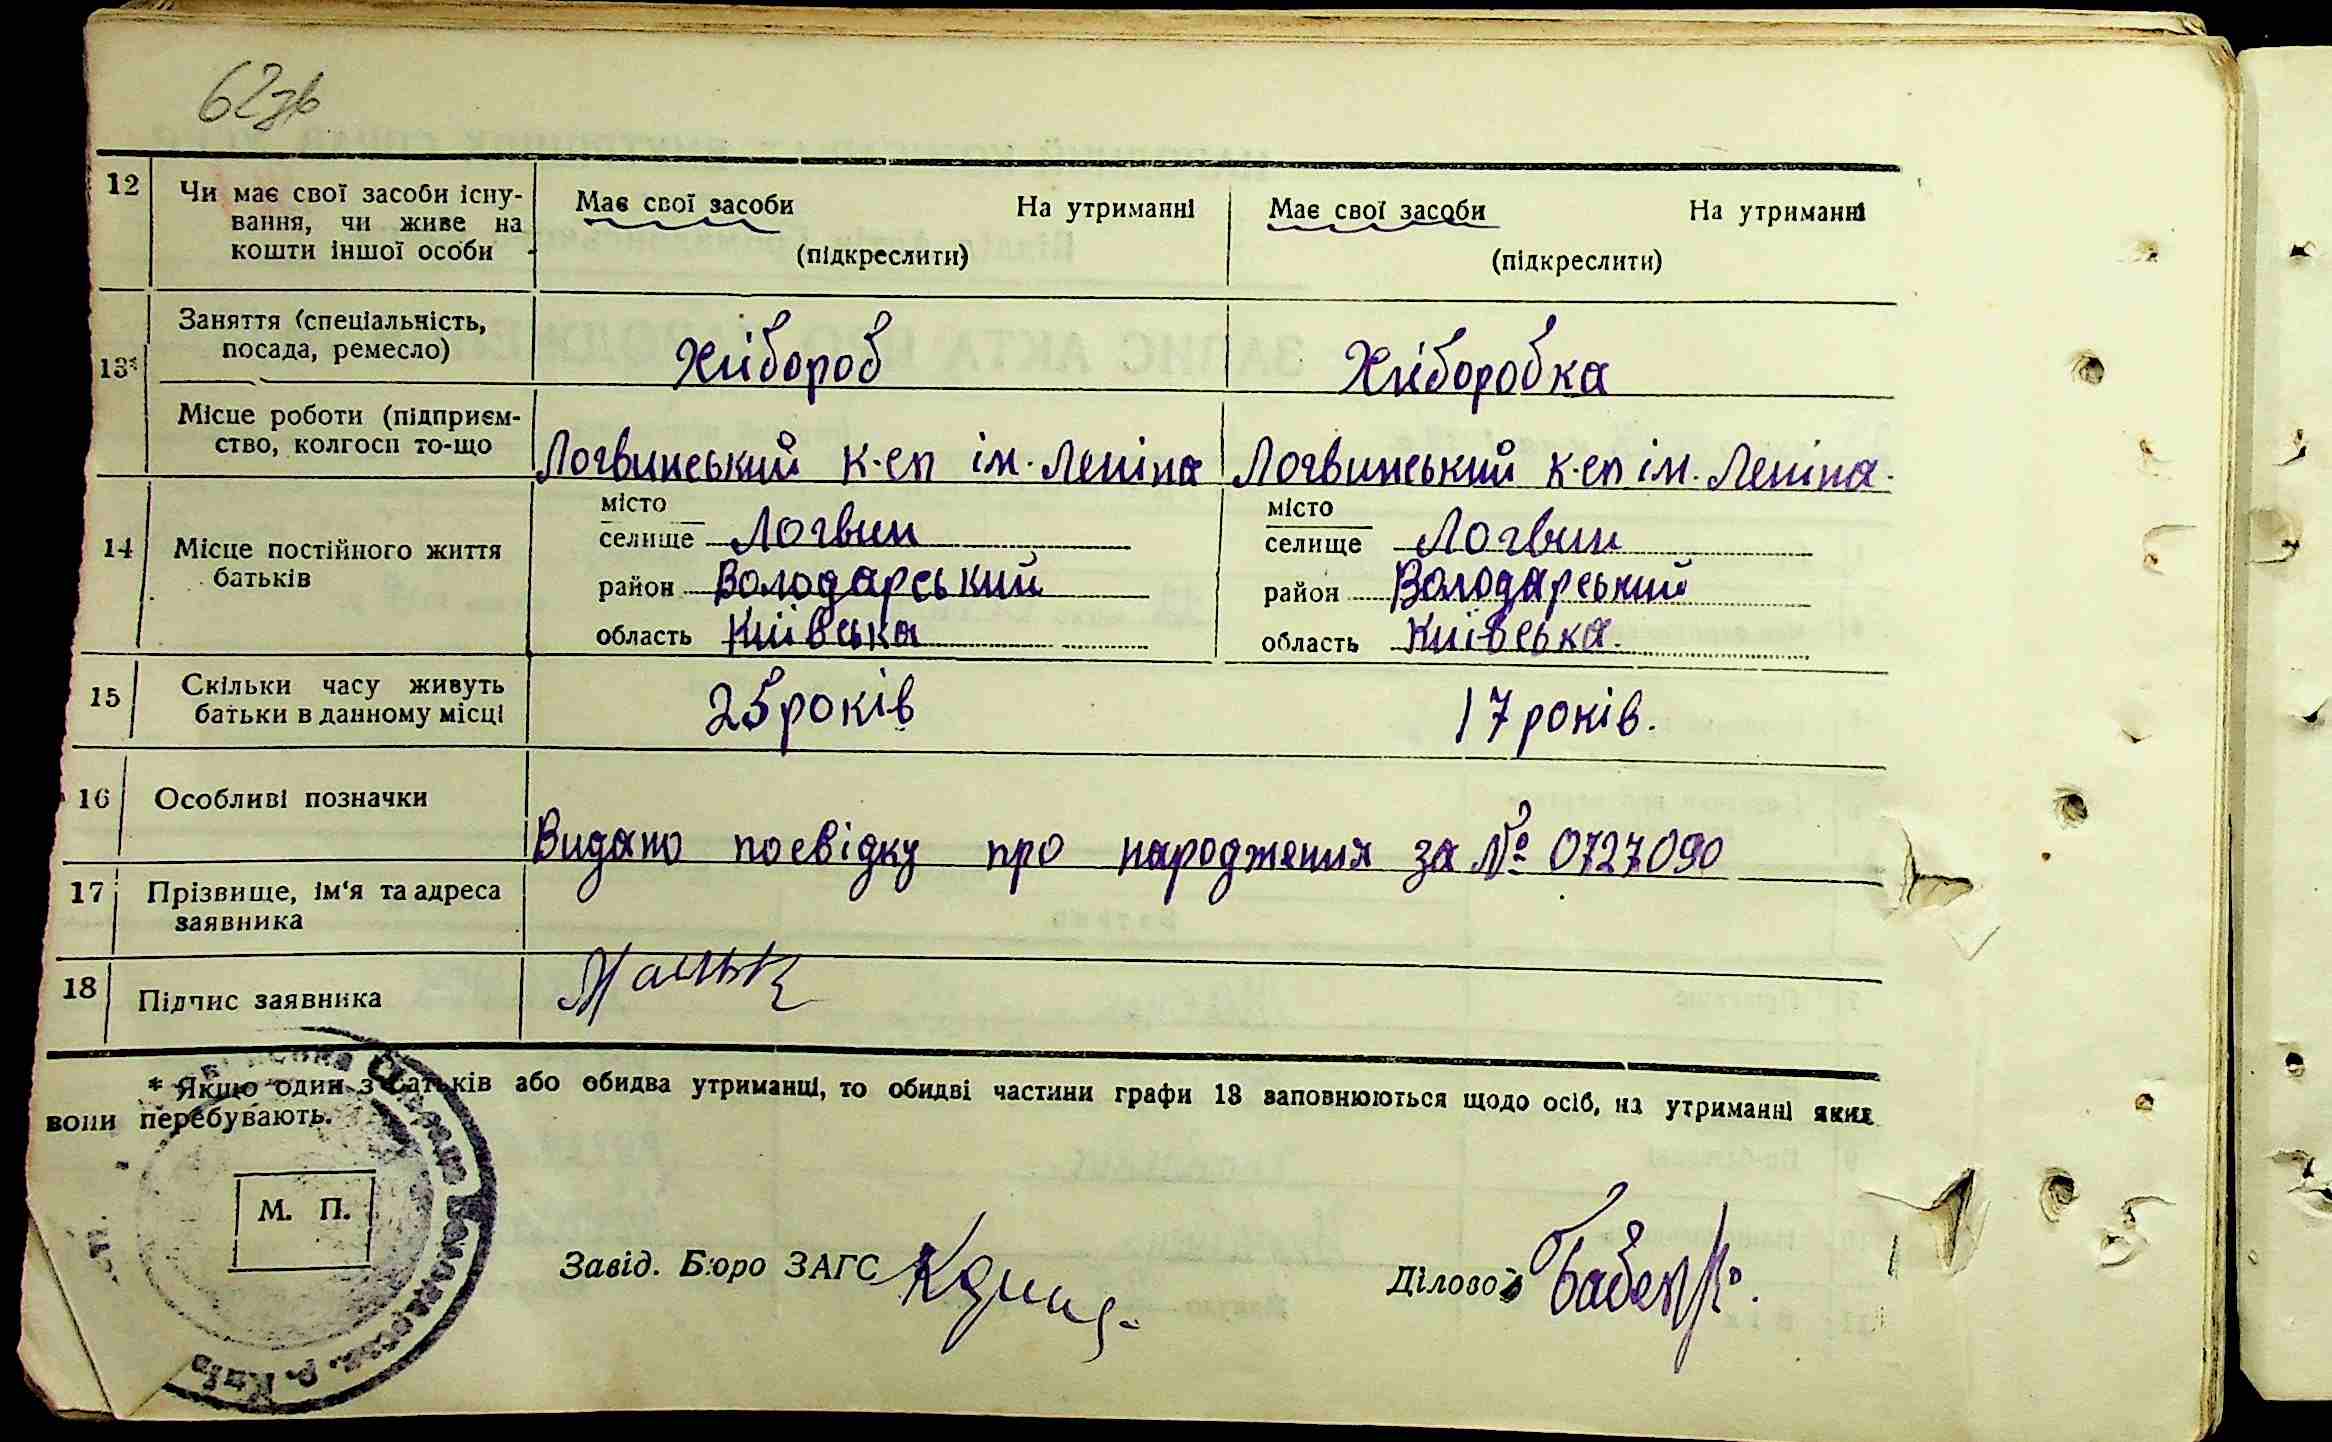 62зв
12 Чи має свої засоби існу-
вання, чи живе на
кошти іншої особи
Має свої засоби На утриманні Має свої засоби На утриманні
(підкреслити) (підкреслити)
13* Заняття (спеціальність,
посада, ремесло)
Хлібороб Хліборобка
Місце роботи (підприєм-
ство, колгосп то-що
Логвинський к-сп ім. Леніна Логвинський к-сп ім. Леніна.
14 Місце постійного життя
батьків
місто місто
селище Логвин селище Логвин
район Володарський район Володарський
область Київська область Київська.
15 Скільки часу живуть
батьки в данному місці
25 років 17 років.
16 Особливі позначки
Видано посвідку про народження за № 0727090
17 Прізвище, ім'я та адреса
заявника
18 Підпис заявника
* Якщо один з батьків або обидва утриманці, то обидві частини графи 13 заповнюються щодо осіб, на утриманні яких
вони перебувають.
М. П.
Завід. Бюро ЗАГС
Діловод